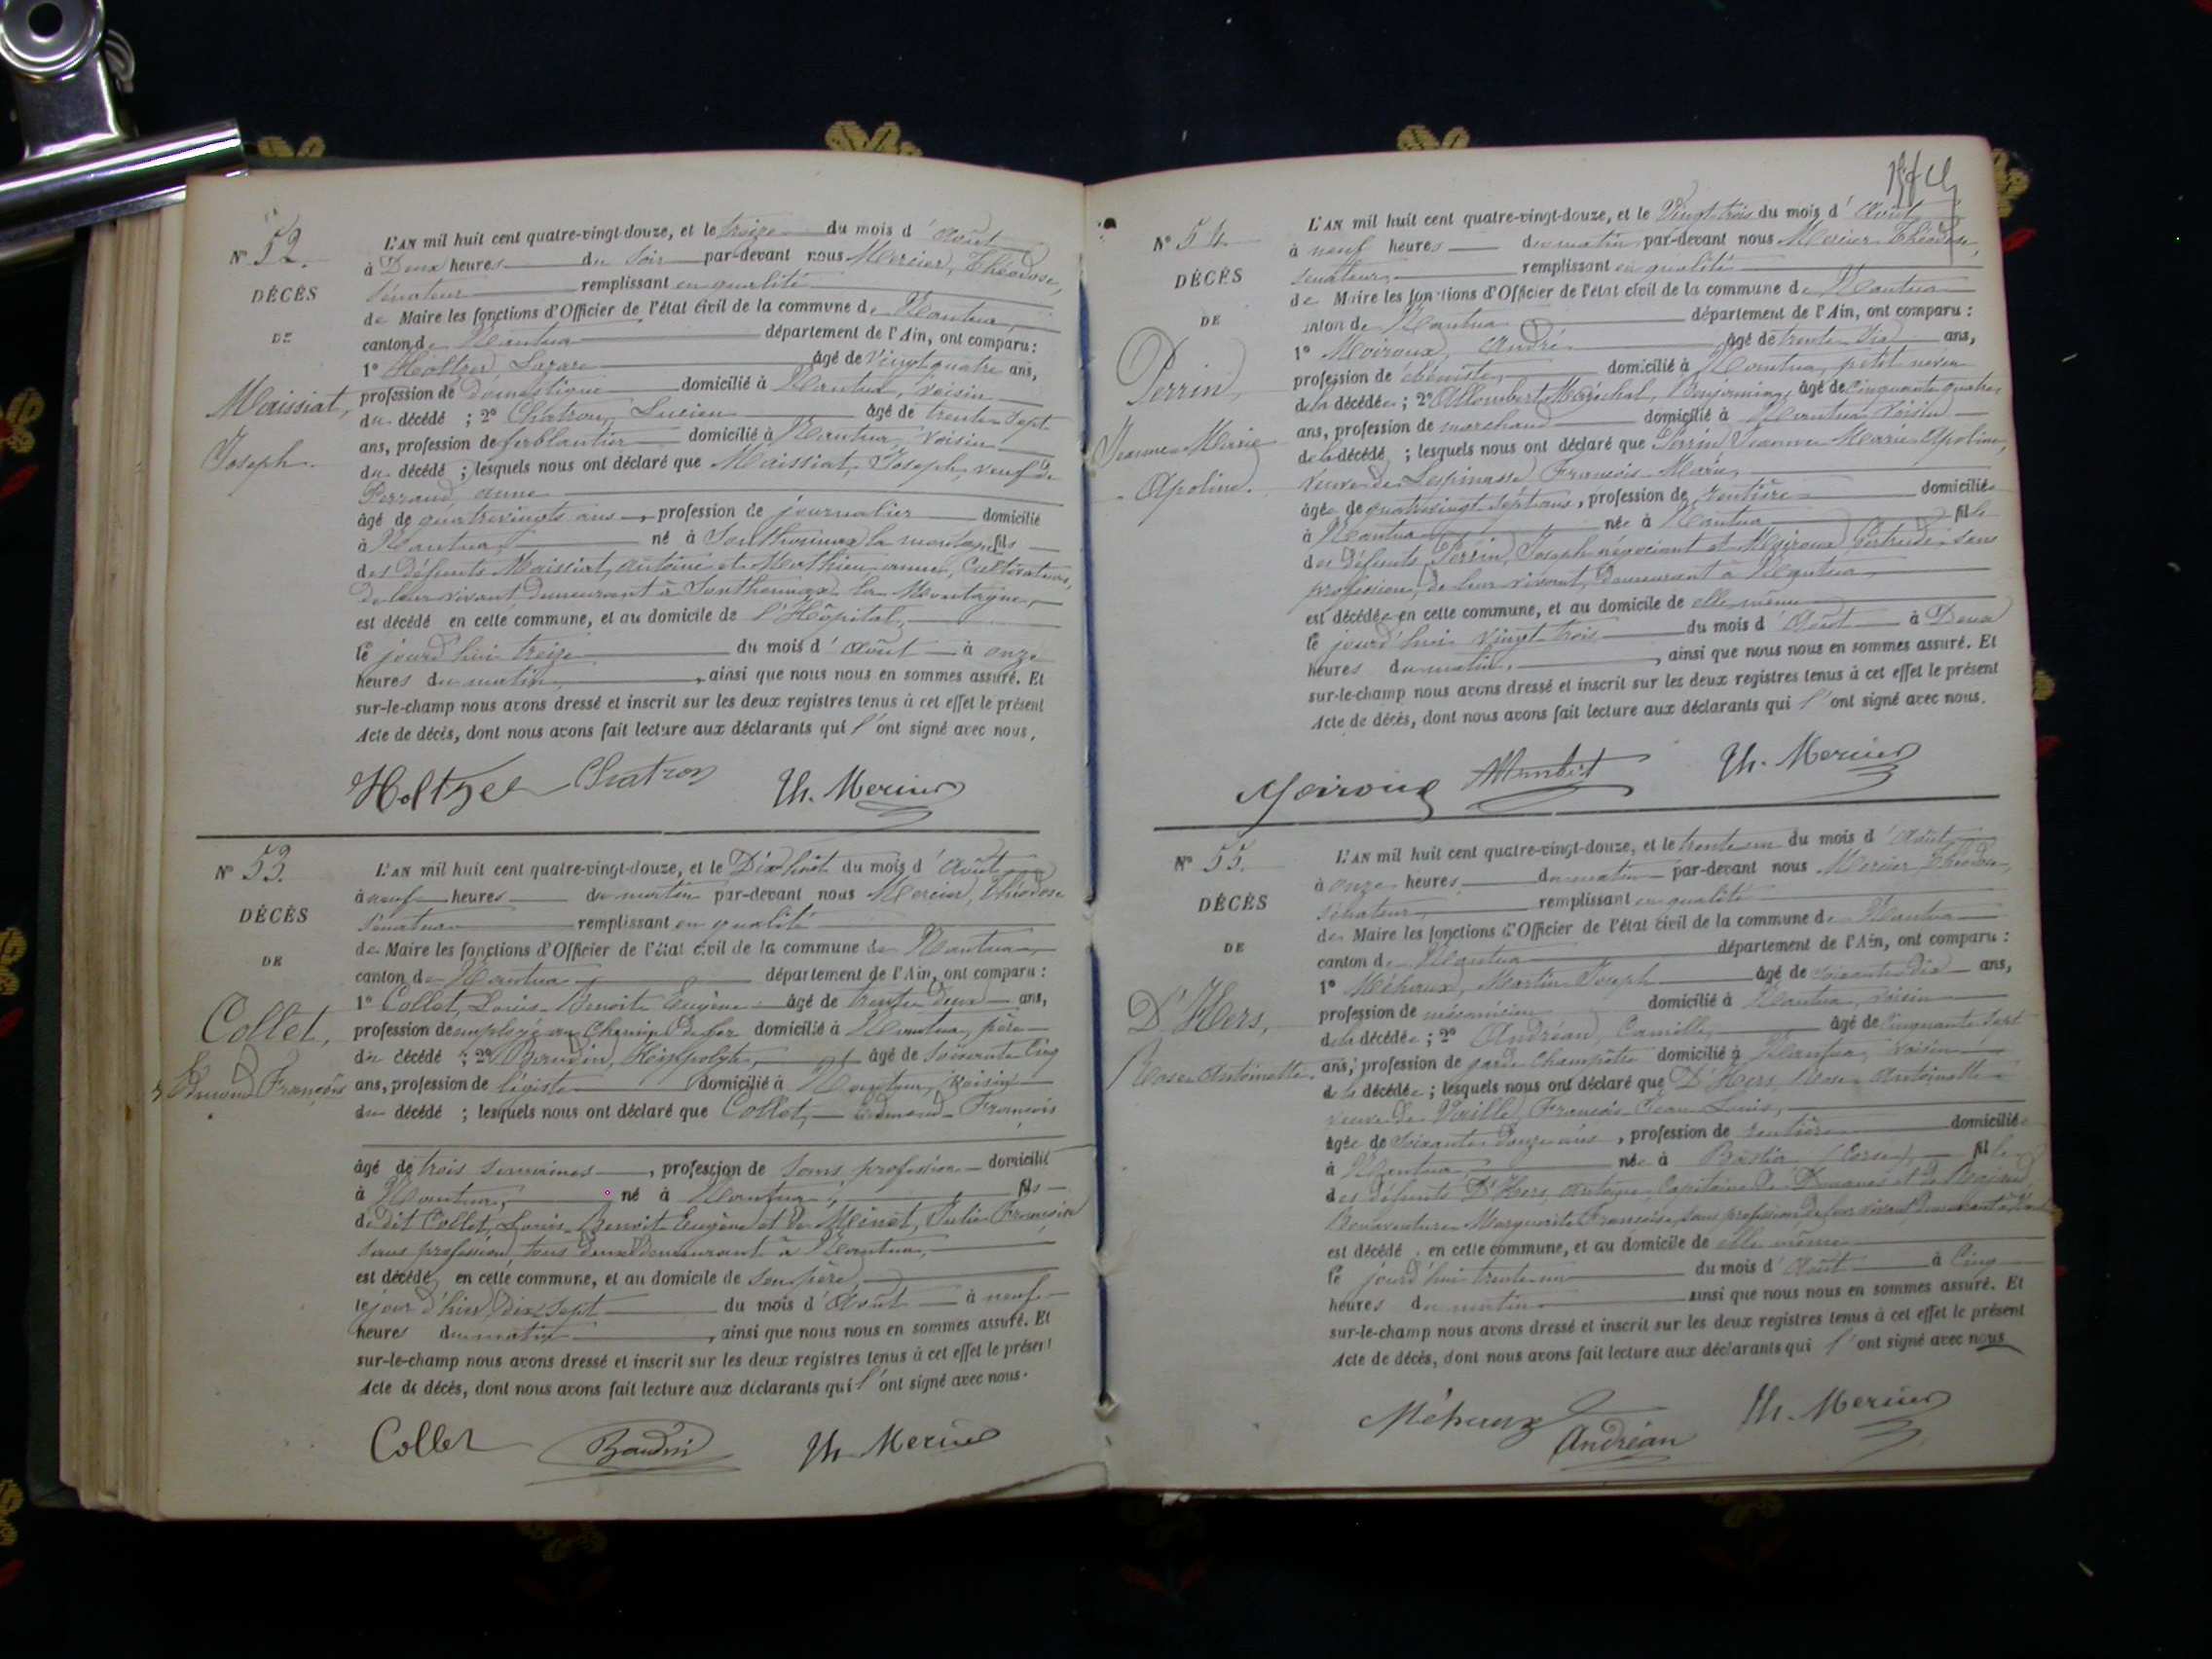 N° 52.
DÉCÈS
DE
Maissiat,
Joseph.
L'AN mil huit cent quatre-vingt-douze, et le treize du mois d'Août
à Deux heures du soir par-devant nous Mercier, Théodose,
sénateur remplissant en qualité
de Maire les fonctions d'Officier de l'état civil de la commune de Nantua,
canton de Nantua département de l'Ain, ont comparu :
1° Holtzer Lazare âgé de vingt quatre ans,
profession de domestique domicilié à Nantua, voisin
du décédé ; 2° Chatron, Lucien âgé de trente sept
ans, profession de ferblantier domicilié à Nantua, voisin
du décédé ; lesquels nous ont déclaré que Maissiat, Joseph, veuf de
Perraud, anne
âgé de quatrevingts ans, profession de journalier domicilié
à Nantua, né à Sonthonnax la montagne fils
des défunts Maissiat, antoine et Mathieu anne, Cultivateurs,
de leur vivant demeurant à Sonthonnax la Montagne,
est décédé en cette commune, et au domicile de l'Hôpital,
le jourd'hui treize du mois d'Août à onze
heures du matin, ainsi que nous nous en sommes assuré. Et
sur-le-champ nous avons dressé et inscrit sur les deux registres tenus à cet effet le présent
Acte de décès, dont nous avons fait lecture aux déclarants qui l'ont signé avec nous.
Holtzer Chatron Th. Mercier
N° 53.
DÉCÈS
DE
Collet,
François
L'AN mil huit cent quatre-vingt-douze, et le Dix huit du mois d'Août
à neuf heures du matin par-devant nous Mercier, Théodose
sénateur remplissant en qualité
de Maire les fonctions d'Officier de l'état civil de la commune de Nantua,
canton de Nantua département de l'Ain, ont comparu :
1° Collet, Louis Benoit Eugène âgé de trente deux ans,
profession de employé au Chemin de fer domicilié à Nantua, père
du décédé ; 2° Baudin, Hippolyte, âgé de soixante cinq
ans, profession de légiste domicilié à Nantua, voisin
du décédé ; lesquels nous ont déclaré que Collet, François
âgé de trois semaines, profession de sans profession domicilié
à Nantua, né à Nantua, fils
du dit Collet, Louis Benoit Eugène et de Minet, Julie Françoise
sans profession tous deux demeurant à Nantua,
est décédé en cette commune, et au domicile de son père,
le jour d'hier, dix sept du mois d'Août à neuf
heures du matin, ainsi que nous nous en sommes assuré. Et
sur-le-champ nous avons dressé et inscrit sur les deux registres tenus à cet effet le présent
Acte de décès, dont nous avons fait lecture aux déclarants qui l'ont signé avec nous.
Collet Baudin Th. Mercier
N° 54.
DÉCÈS
DE
Perrin,
Jeanne Marie
Apoline.
L'AN mil huit cent quatre-vingt-douze, et le Vingt trois du mois d'Août
à neuf heures du matin par-devant nous Mercier Théodose,
sénateur, remplissant en qualité
de Maire les fonctions d'Officier de l'état civil de la commune de Nantua
canton de Nantua département de l'Ain, ont comparu :
1° Moiroux, André âgé de trente six ans,
profession de ébéniste, domicilié à Nantua, petit neveu
de la décédée ; 2° Allombert Maréchal, Benjamin, âgé de cinquante quatre
ans, profession de marchand domicilié à Nantua voisin
de la décédée ; lesquels nous ont déclaré que Perrin Jeanne Marie Apoline,
veuve de Lespinasse François Marie,
âgée de quatrevingt sept ans, profession de rentière domiciliée
à Nantua née à Nantua fille
des défunts Perrin, Joseph négociant et Moiroux Gertrude, sans
profession, de leur vivant, Demeurant à Nantua,
est décédée en cette commune, et au domicile de elle même
le jourd'hui vingt trois du mois d'Août à Deux
heures du matin, ainsi que nous nous en sommes assuré. Et
sur-le-champ nous avons dressé et inscrit sur les deux registres tenus à cet effet le présent
Acte de décès, dont nous avons fait lecture aux déclarants qui l'ont signé avec nous.
Moiroux Allombert Th. Mercier
N° 55.
DÉCÈS
DE
D'Hers,
Rose Antoinette
L'AN mil huit cent quatre-vingt-douze, et le trente un du mois d'Août
à onze heures du matin par-devant nous Mercier Théodose,
sénateur, remplissant en qualité
de Maire les fonctions d'Officier de l'état civil de la commune de Nantua
canton de Nantua département de l'Ain, ont comparu :
1° Méhaux, Martin Joseph âgé de soixante dix ans,
profession de mécanicien domicilié à Nantua, voisin
de la décédée ; 2° Andréan, Camille âgé de cinquante sept
ans, profession de garde Champêtre domicilié à Nantua, voisin
de la décédée ; lesquels nous ont déclaré que D'Hers, Rose Antoinette
veuve de François Jean Louis,
âgée de soixante douze ans, profession de rentière domiciliée
à Nantua, née à Bastia (Corse), fille
des défunts D'Hers, antoine Capitaine de Douanes et de
Bonaventure Marguerite Françoise, sans profession, de leur vivant Demeurant à
est décédé en cette commune, et au domicile de elle même
le jourd'hui trente un du mois d'Août à Cinq
heures du matin ainsi que nous nous en sommes assuré. Et
sur-le-champ nous avons dressé et inscrit sur les deux registres tenus à cet effet le présent
Acte de décès, dont nous avons fait lecture aux déclarants qui l'ont signé avec nous
Méhaux Andréan Th. Mercier